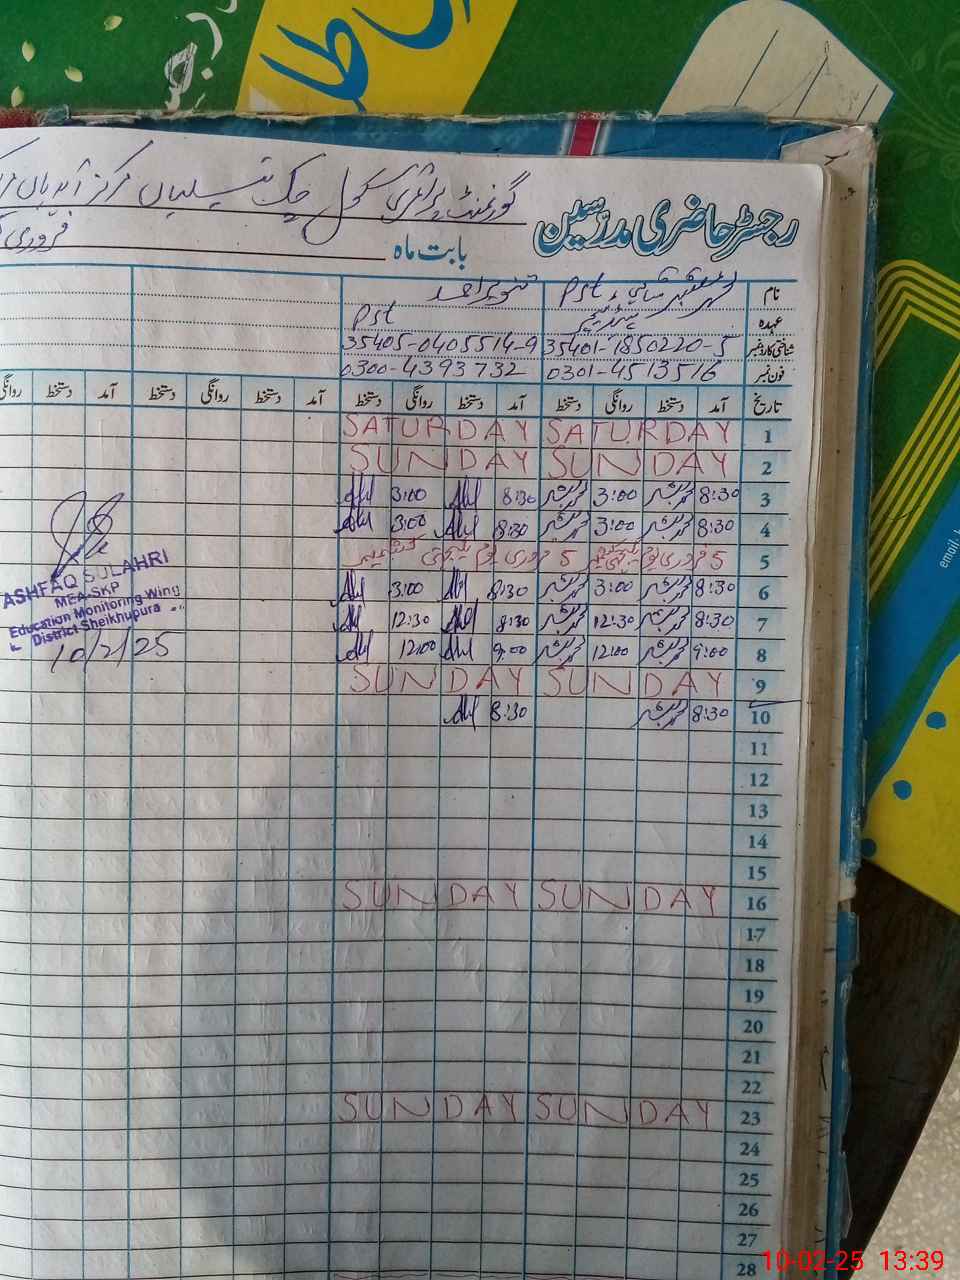 رجسٹر حاضری مدرسین
گورنمنٹ پرائمری سکول چک
بابت ماہ فروری
نام
عہدہ Pst Pst
شناختی کارڈ نمبر 35401-1850220-5 35405-0405514-9
فون نمبر 0301-4513516 0300-4393732
تاریخ آمد دستخط روانگی دستخط آمد دستخط روانگی دستخط آمد دستخط روانگی دستخط آمد دستخط روانگی
1 SATURDAY SATURDAY
2 SUNDAY SUNDAY
3 8:30 3:00 8:30 3:00
4 8:30 3:00 8:30 3:00
5 5 فروری 5 فروری
6 8:30 3:00 8:30 3:00
7 8:30 12:30 8:30 12:30
8 9:00 12:00 9:00 12:00
9 SUNDAY SUNDAY
10 8:30 8:30
11
12
13
14
15
16 SUNDAY SUNDAY
17
18
19
20
21
22
23 SUNDAY SUNDAY
24
25
26
27
28
ASHFAQ SULAHRI
MEA-SKP
Education Monitoring Wing
District Sheikhupura
10/2/25
email
10-02-25 13:39